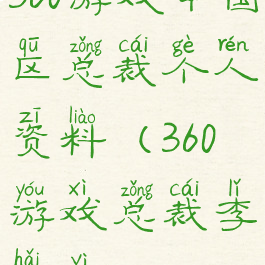 360游戏中国
qū zǒng cái gè rén
区总裁个人
zī liào
资料（360
yóu xì zǒng cái lǐ
游戏总裁李
hǎi yì